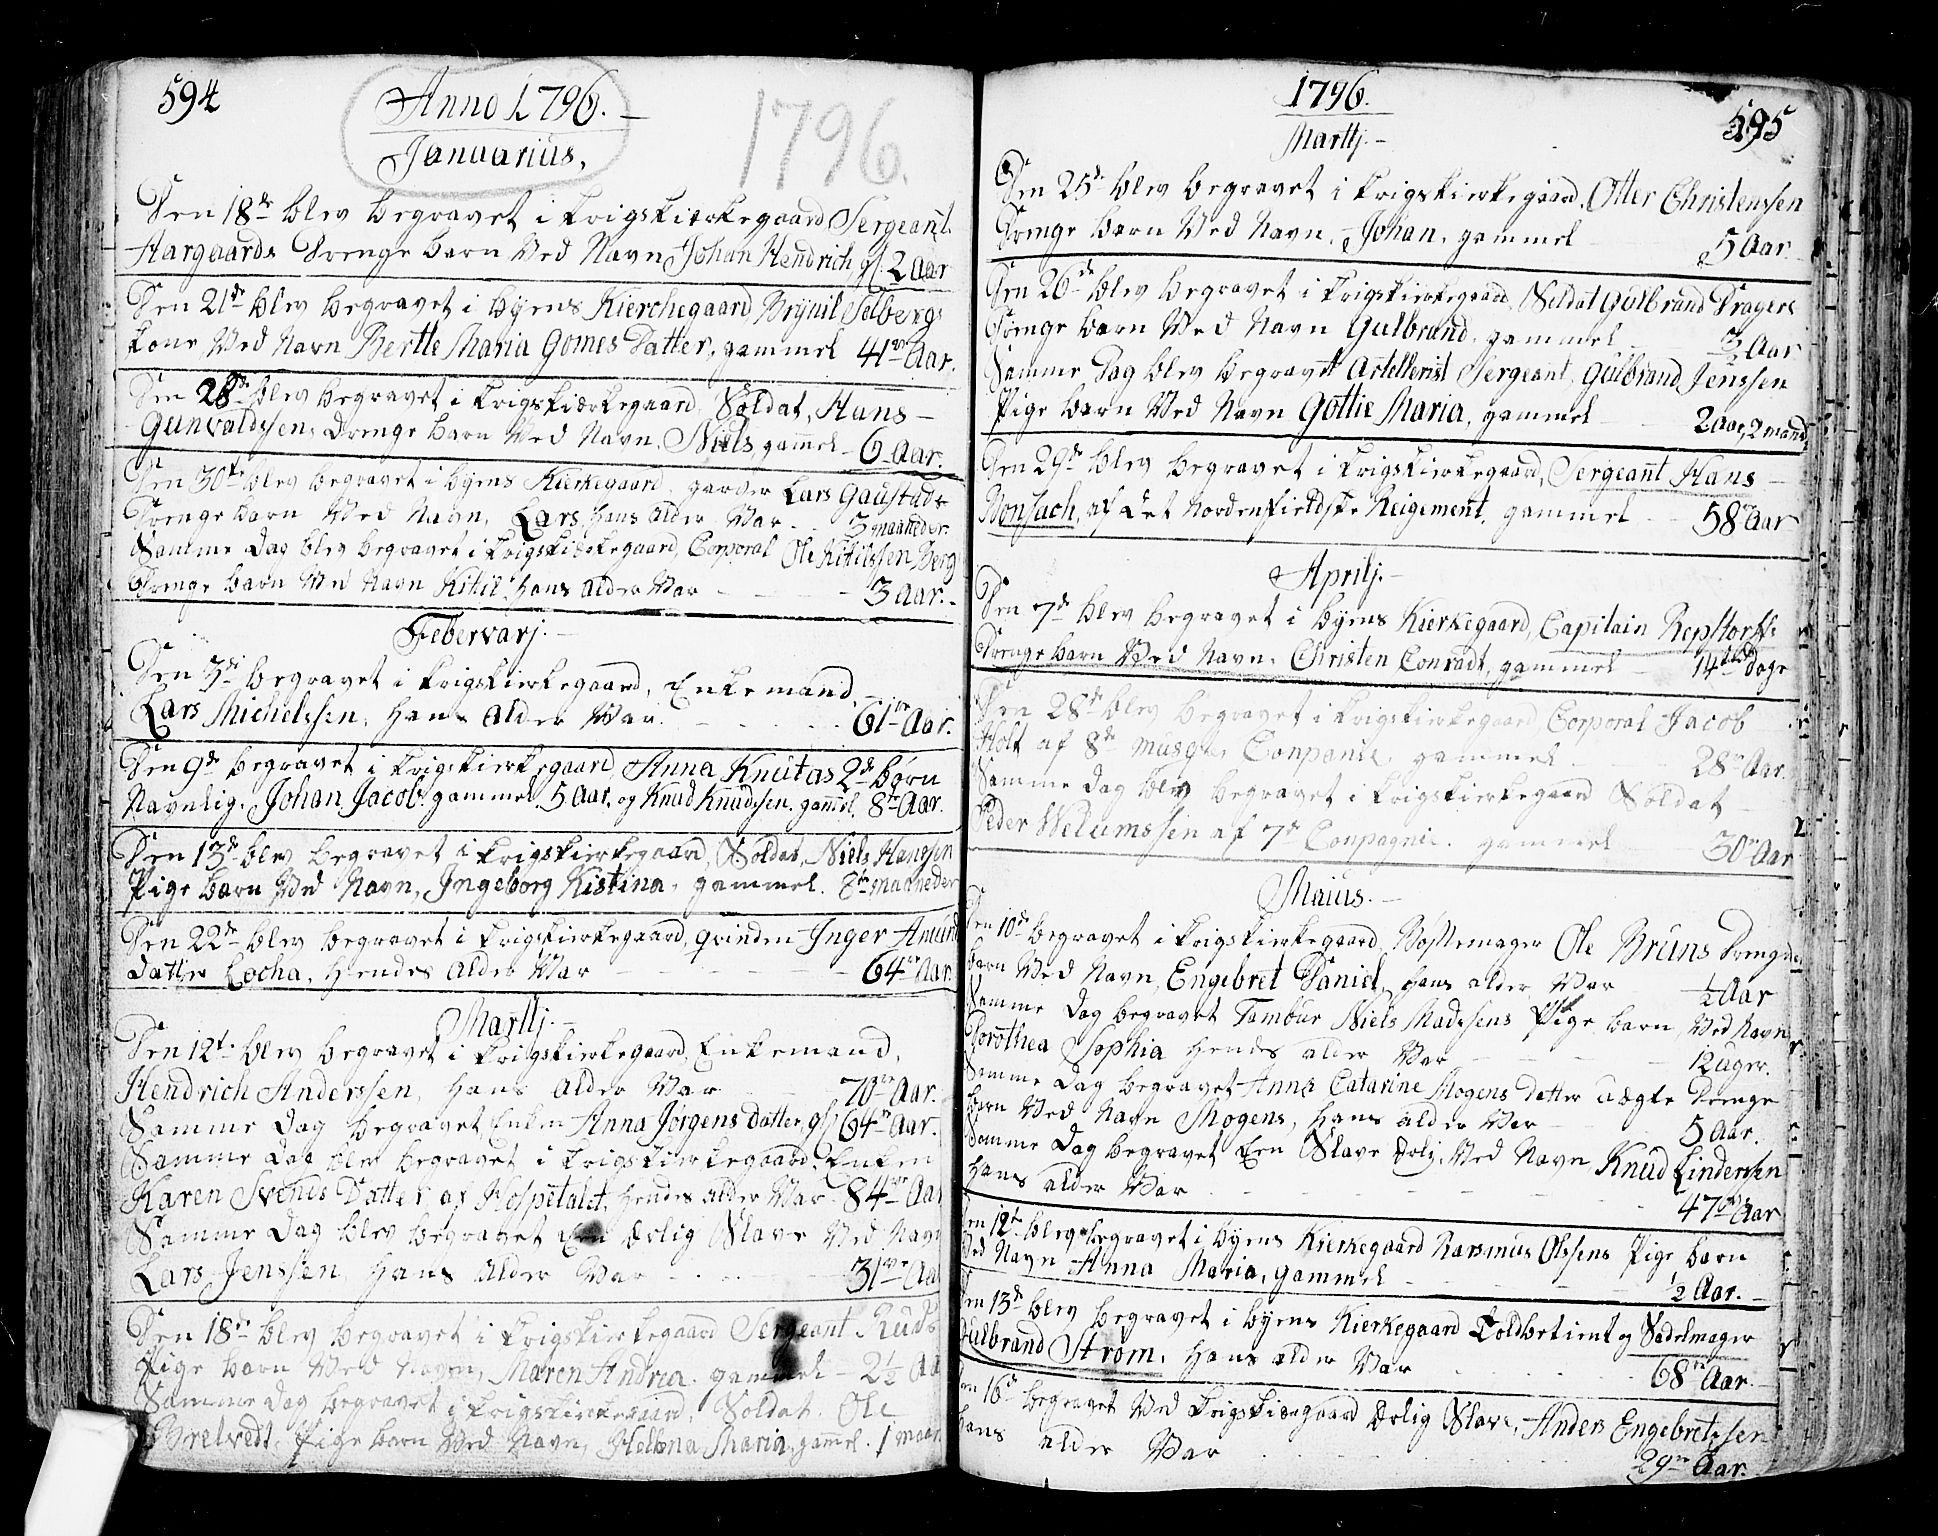 594
Anno 1796.
1796.
Januarius.
Den 18de blev begravet i krigskierkegaard Sergeant
Aargaards Drenge barn Ved Navn Johan Hendrich gl. 2 Aar
Den 21de blev begravet i byens Kierchegaard, Brynil Selbergs
kone Ved Navn Berthe Maria Gomes Datter, gammel 41 Aar.
Den 28de blev begravet i krigskierkegaard, Soldat, Hans
Gunvaldssens Drenge barn Ved Navn, Niels, gamel 6 Aar.
Den 30te blev begravet i byens Kierkegaard, garder Lars Gaustads
Drenge barn Ved Navn, Lars, hans alder Var 3 maaneder.
Samme Dag blev begravet i krigskierkegaard, Corporal Ole Kitilssen Berg
Drenge barn Ved Navn Kitil, hans alder Var 3 Aar.
Febervarj.
Den 3de begravet i krigskierkegaard, Enkemand,
Lars Michelssen, hans alder Var 61 Aar.
Den 9de begravet i krigskierkegaard, Anna Knutas 2de børn
Navnlig, Johan Jacob, gammel 5 Aar, og Knud Knudssen, gamel. 8te Aar.
Den 13de blev begravet i krigskierkegaard, Soldat, Niels Hanssen
Pige barn Ved Navn, Ingeborg Kistina, gammel. 8te maaneder
Den 22de blev begravet i krigskierkegaard, qvinden Inger Amund
datter Locha, hendes alder Var 64 Aar.
Martij.
Den 12te blev begravet i krigskierkegaard, Enkemand,
Hendrich Anderssen, hans alder Var 70 Aar.
Samme Dag begravet, Enken Anna Jørgens datter, gl. 64 Aar.
Samme Dag blev begravet i krigskierkegaard, Enken
Karen Svends Datter af Hospetalet, hendes alder Var 84 Aar
Samme Dag blev begravet Een ærlig Slave Ved Navn
Lars Jenssen, hans alder Var 31 Aar
Den 18de blev begravet i krigskierkegaard Sergeant Ruds
Pige barn Ved Navn, Maren Andrea. gammel 2½ Aar
Samme Dag begravet i krigskierkegaard, Soldat. Ole
Brelvedt, Pige barn Ved Navn, Hellena Maria, gamel. 1 maan
1796.
595
Martij.
Den 25de blev begravet i krigskierkegaard, Otter Christenssen
Drenge barn Ved Navn, Johan, gammel 5 Aar
Den 26de blev begravet i krigskierkegaard, Soldat Gulbrand Dragers
Drenge barn Ved Navn Gulbrand, gammel 3/2 Aar
Samme Dag blev begravet Artellerist Sergeant, Gulbrand Jenssen
Pige barn Ved Navn Gottie Maria, gammel 2 Aar, 2 mand
Den 29de blev begravet i krigskierkegaard, Sergeant Hans
Bonsach, af det Nordenfieldske Reigement, gammel 58 Aar
Aprilj.
Den 7de blev begravet i byens Kierkegaard, Capitain Repstorffs
Drenge barn Ved Navn, Christen Conradt, gammel 14 Dage
Den 28de blev begravet i krigskierkegaard, Corporal Jacob
Holt af 8de musq. Conpanie, gammel 28 Aar.
Samme Dag blev begravet i krigskierkegaard Soldat
Peder Welumssen af 7de Conpagnie. gammel 30 Aar
Maius.
Den 10de begravet i krigskierkegaard, Bøssemager Ole Bruns Drenge
barn Ved Navn, Engebret Daniel, hans alder Var ½ Aar
Samme Dag begravet Tambur Niels Madssens Pige barn, Ved Navn
Dorothea Sophia hendes alder Var 12 uger.
Samme Dag begravet Anna Catarine Mogens Datter uægte Drenge
barn Ved Navn Mogens, hans alder Var 5 Aar.
Samme Dag begravet Een Slave ærlig, Ved Navn, Knud Linderssen
hans alder Var 47 Aar
Den 12te blev begravet i byens Kierkegaard Rarsmus Olssens Pige barn
Ved Navn Anna Maria, gammel ½ Aar.
Den 13de blev begravet i byens Kierkegaard Toldbetient og Sadelmager
Gulbrand Strøm, hans alder Var 68 Aar.
Den 16de begravet Ved krigskierkegaard ærlig Slave, Anders Engebretssen
hans alder Var 29 Aar.